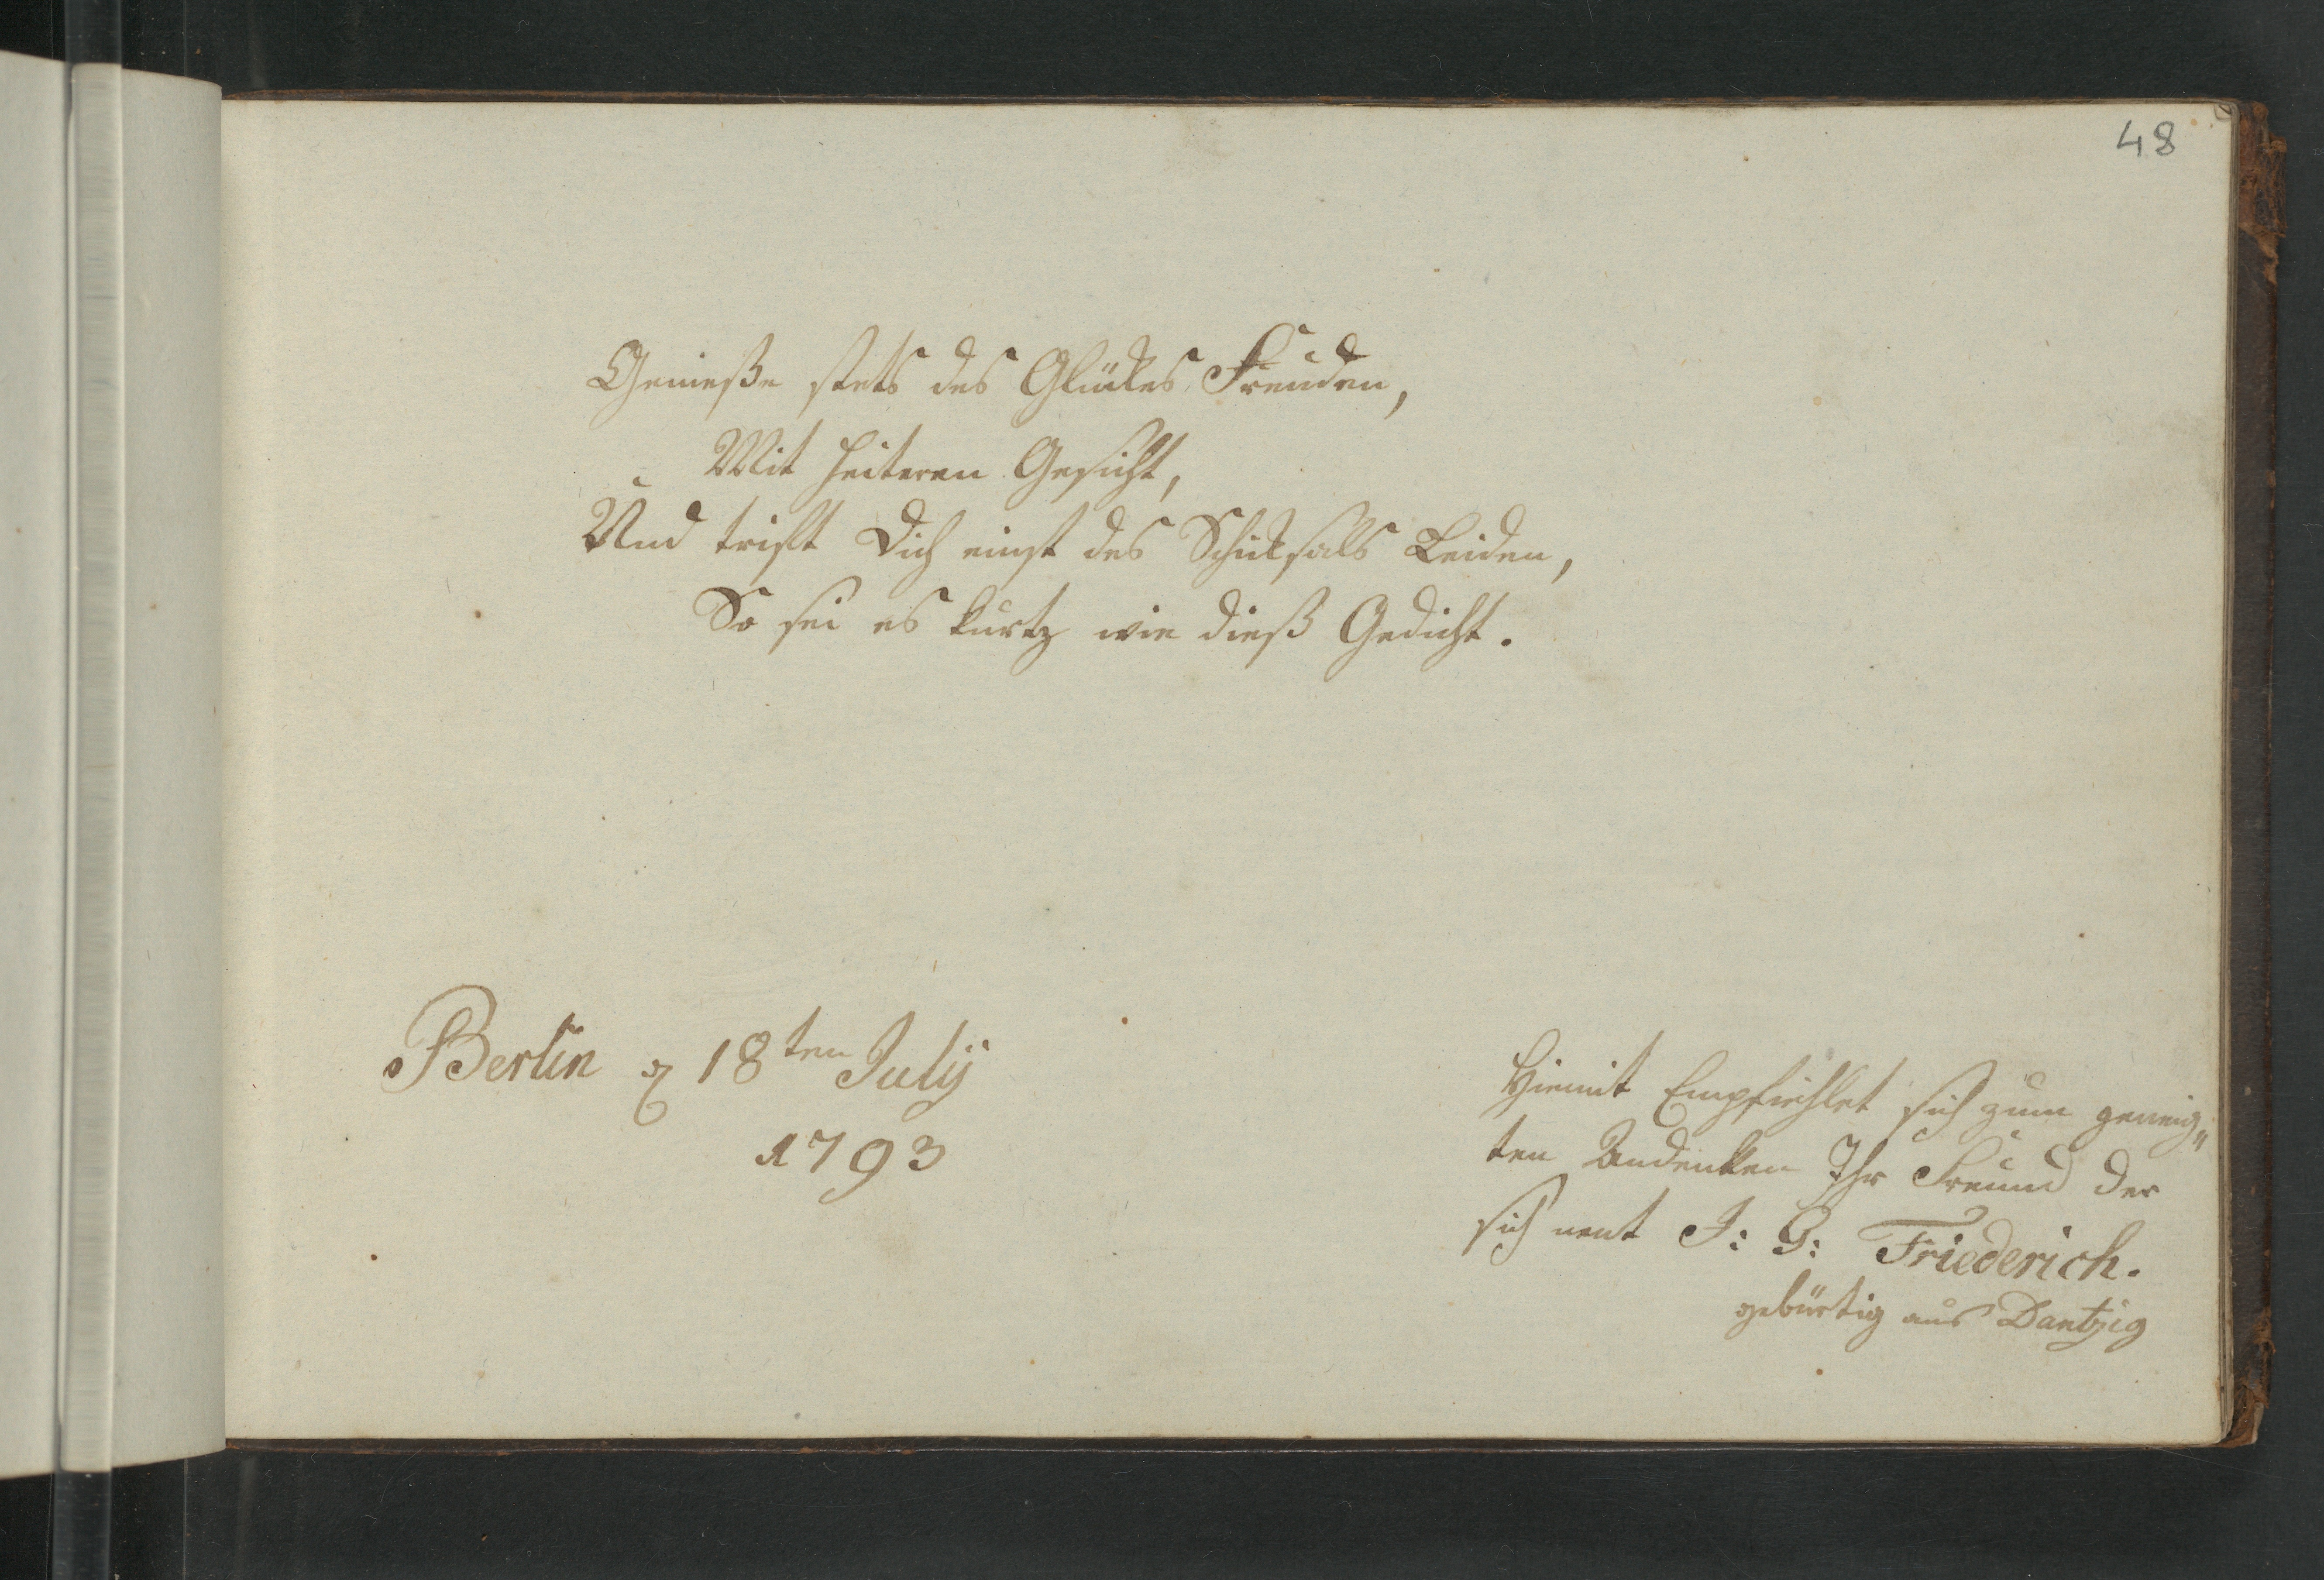 48
Genieße stets des Glückes Freuden,
Mit heiteren Gesicht,
Und trift Dich einst des Schicksals Leiden,
So sei es kurtz wie dieß Gedicht.
Berlin 18ten July
1793
Hiemit Empfiehlet sich zum geneig„
ten Andenken Ihr Freund der
sich nent J: G: Friederich.
gebürtig aus Dantzig